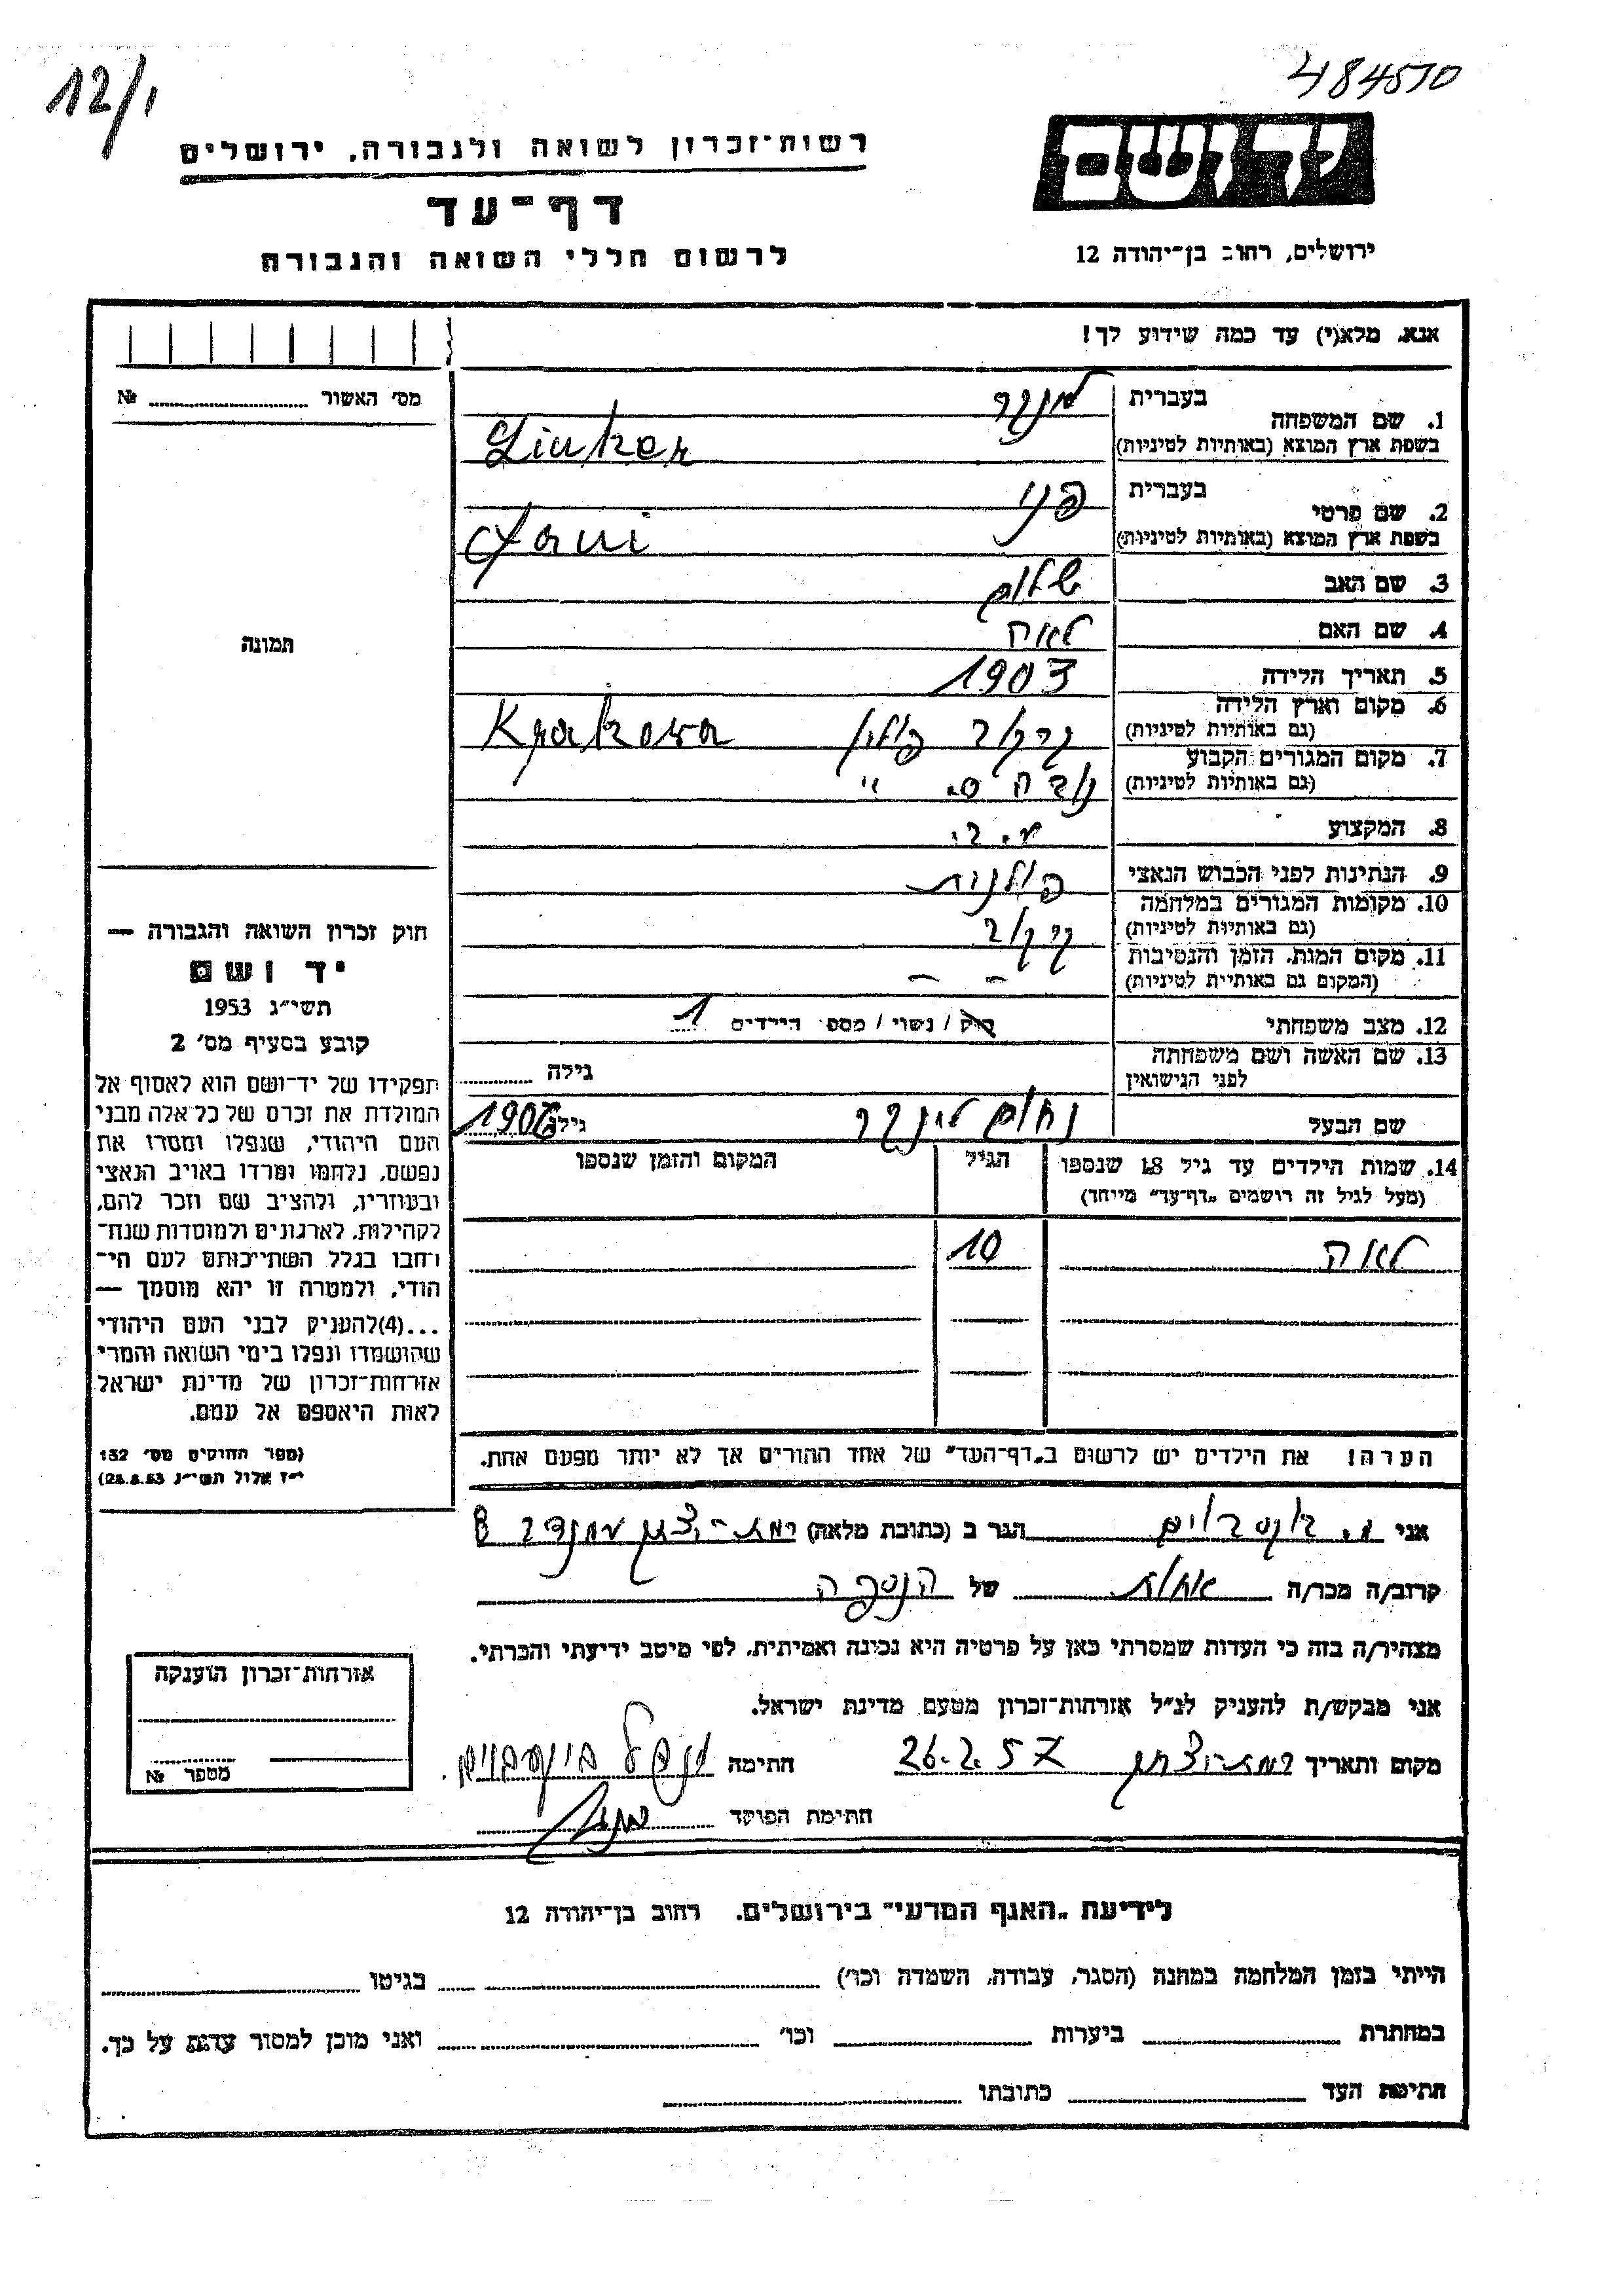 484570
12/1
יד ושם
רשות־זכרון לשואה ולגבורה, ירושלים
דף־עד
לרשום חללי השואה והגבורה
ירושלים, רחוב בן־יהודה 12
אנא, מלא(י) עד כמה שידוע לך!
מס׳ האשור № 
1. שם המשפחה
בעברית לינקר
בשפת ארץ המוצא (באותיות לטיניות) Linker
2. שם פרטי
בעברית פני
בשפת ארץ המוצא (באותיות לטיניות) Fani
3. שם האב שלום
4. שם האם לאה
5. תאריך הלידה 1903
6. מקום וארץ הלידה קרקוב פולין Krakowa
(גם באותיות לטיניות)
7. מקום המגורים הקבוע
(גם באותיות לטיניות)
8. המקצוע
9. הנתינות לפני הכבוש הנאצי פולנית
10. מקומות המגורים במלחמה קרקוב
(גם באותיות לטיניות)
11. מקום המות, הזמן והנסיבות – –
(המקום גם באותיות לטיניות)
12. מצב משפחתי רוק / נשוי / מספר הילדים 1
13. שם האשה ושם משפחתה גילה
לפני הנישואין
שם הבעל נחום לינקר גילו 1906
14. שמות הילדים עד גיל 18 שנספו הגיל המקום והזמן שנספו
(מעל לגיל זה רושמים „דף־עד” מיוחד)
לאה 10
הערה! את הילדים יש לרשום ב„דף־העד” של אחד ההורים אך לא יותר מפעם אחת.
תמונה
חוק זכרון השואה והגבורה —
יד ושם
תשי״ג 1953
קובע בסעיף מס׳ 2
תפקידו של יד־ושם הוא לאסוף אל
המולדת את זכרם של כל אלה מבני
העם היהודי, שנפלו ומסרו את
נפשם, נלחמו ומרדו באויב הנאצי
ובעוזריו, ולהציב שם וזכר להם,
לקהילות, לארגונים ולמוסדות שנח־
רבו בגלל השתייכותם לעם הי־
הודי, ולמטרה זו יהא מוסמך —
...(4)להעניק לבני העם היהודי
שהושמדו ונפלו בימי השואה והמרי
אזרחות־זכרון של מדינת ישראל
לאות היאספם אל עמם.
(ספר החוקים מס׳ 132
י״ז אלול תשי״ג 28.8.53)
אני הגר ב (כתובת מלאה) רמת־יצחק 8
קרוב/ה מכר/ה אחות של הנספה
מצהיר/ה בזה כי העדות שמסרתי כאן על פרטיה היא נכונה ואמיתית, לפי מיטב ידיעתי והכרתי.
אני מבקש/ת להעניק לנ״ל אזרחות־זכרון מטעם מדינת ישראל.
מקום ותאריך רמת־יצחק 26.2.57 חתימה
חתימת הפוקד
אזרחות־זכרון הוענקה
מספר №
לידיעת „האגף המדעי” בירושלים, רחוב בן־יהודה 12
הייתי בזמן המלחמה במחנה (הסגר, עבודה, השמדה וכו׳) בגיטו
במחתרת ביערות וכו׳ ואני מוכן למסור עדות על כך.
חתימת העד כתובתו